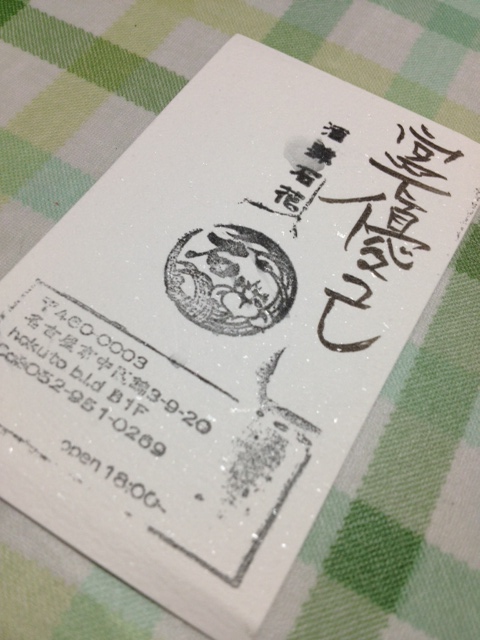 優己
酒 石花
〒460-0003
名古屋市中区錦3-9-20
hokuto bld B1F
052-951-0269
open 18:00~